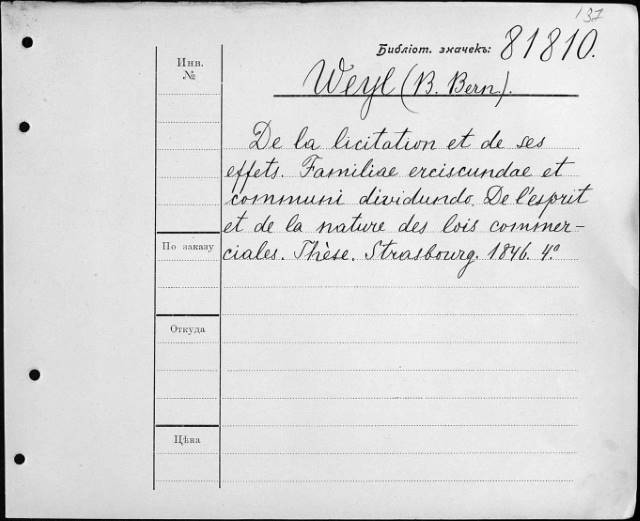 137
Библіот. значекъ: 81810.
Инв.
№
Weyl (B. Bern.).
De la licitation et de ses
effets. Familiae erciscundae et
communi dividundo. De l'esprit
et de la nature des lois commer-
ciales. Thèse. Strasbourg. 1846. 4.º
По заказу
Откуда
Цѣна